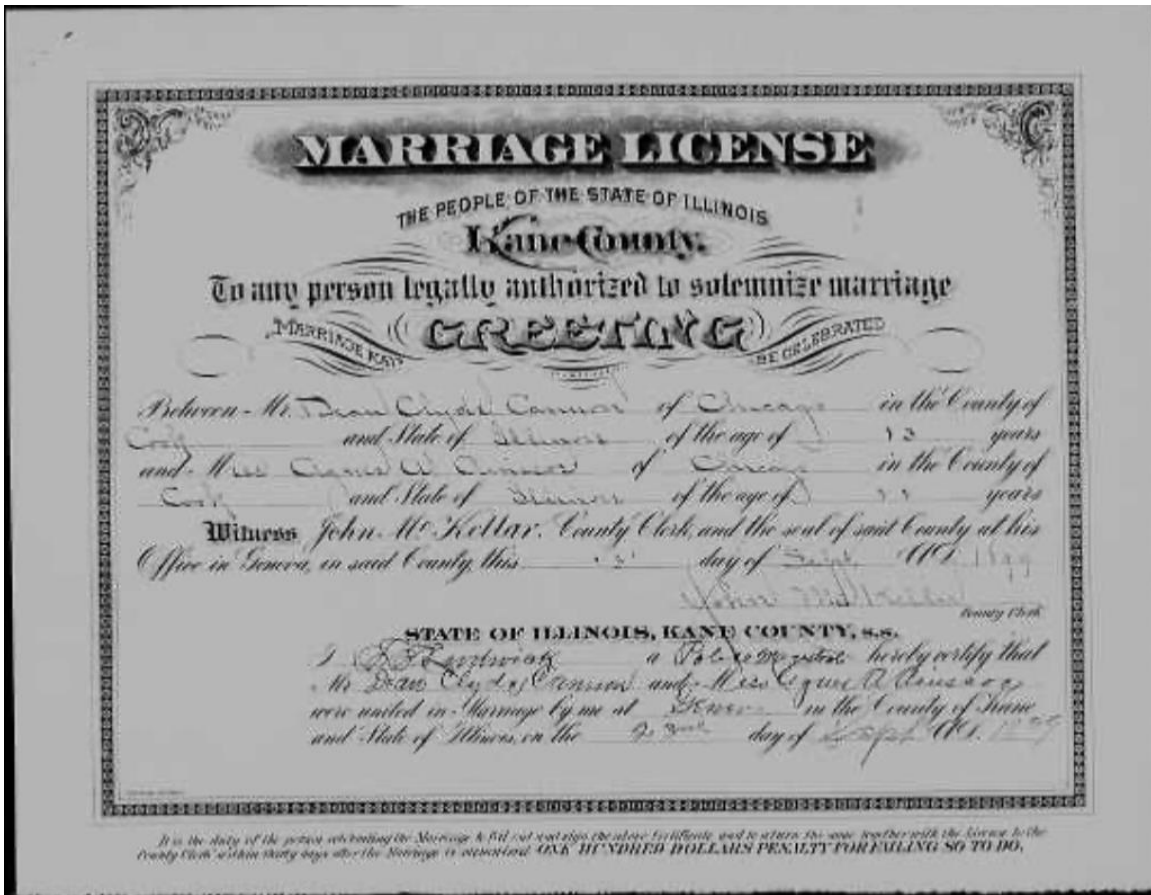 MARRIAGE LICENSE
THE PEOPLE OF THE STATE OF ILLINOIS
Kane County.
To any person legally authorized to solemnize marriage
MARRIAGE MAY GREETING BE CELEBRATED
Between Mr. Dean Clyde Cannon of Chicago in the County of
Cook and State of Illinois of the age of years
and Miss Agnes A of Chicago in the County of
Cook and State of Illinois of the age of years
Witness John McKellar, County Clerk, and the seal of said County at his
Office in Geneva, in said County, this day of Sept. A.D. 1899
John McKellar
County Clerk
STATE OF ILLINOIS, KANE COUNTY, s.s.
I a Police Magistrate hereby certify that
Mr Dean Clyde Cannon and Miss Agnes A
were united in Marriage by me at Geneva in the County of Kane
and State of Illinois, on the day of Sept A.D. 1899
It is the duty of the person celebrating the Marriage to fill out and sign the above Certificate and to return the same together with the License to the
County Clerk within thirty days after the Marriage is solemnized ONE HUNDRED DOLLARS PENALTY FOR FAILING SO TO DO.